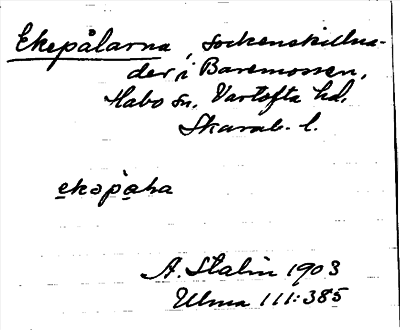 Ekepålarna, sockenskillna-
der i Baremossen,
Habo sn. Vartofta hd.
Skarab. l.
ekəpåḷa
A. Stalin 1903
Ulma 111:385